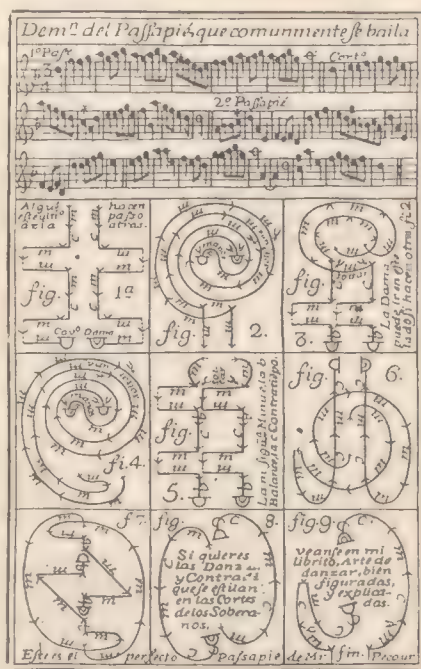 Dem.ⁿ del Paſſapié, que comunmente ſe baila
1º Paſſ
Corto
2º Paſſapié
Aqui
hacen
paſſo
atras.
fig.
1ª
Cavº Dama
fig.
2.
3.
fig.
La Dama
puede ir en eſte
lado, ſi hacen otra fi 2
fi. 4.
fig.
5.
La m ſigª Minuet, la b
Balance, la c Contratiẽpo.
fig.
6.
f 7.
fig.
8.
Si quieres
las Danz
y Contra
que ſe eſtilan
en las Cortes
de los Sobera-
nos.
fig. 9
veanſe en mi
librito, Arte de
danzar, bien
figuradas,
y explica-
das.
Eſte es el perfecto Paſſapie de Mr. fin. Pecour